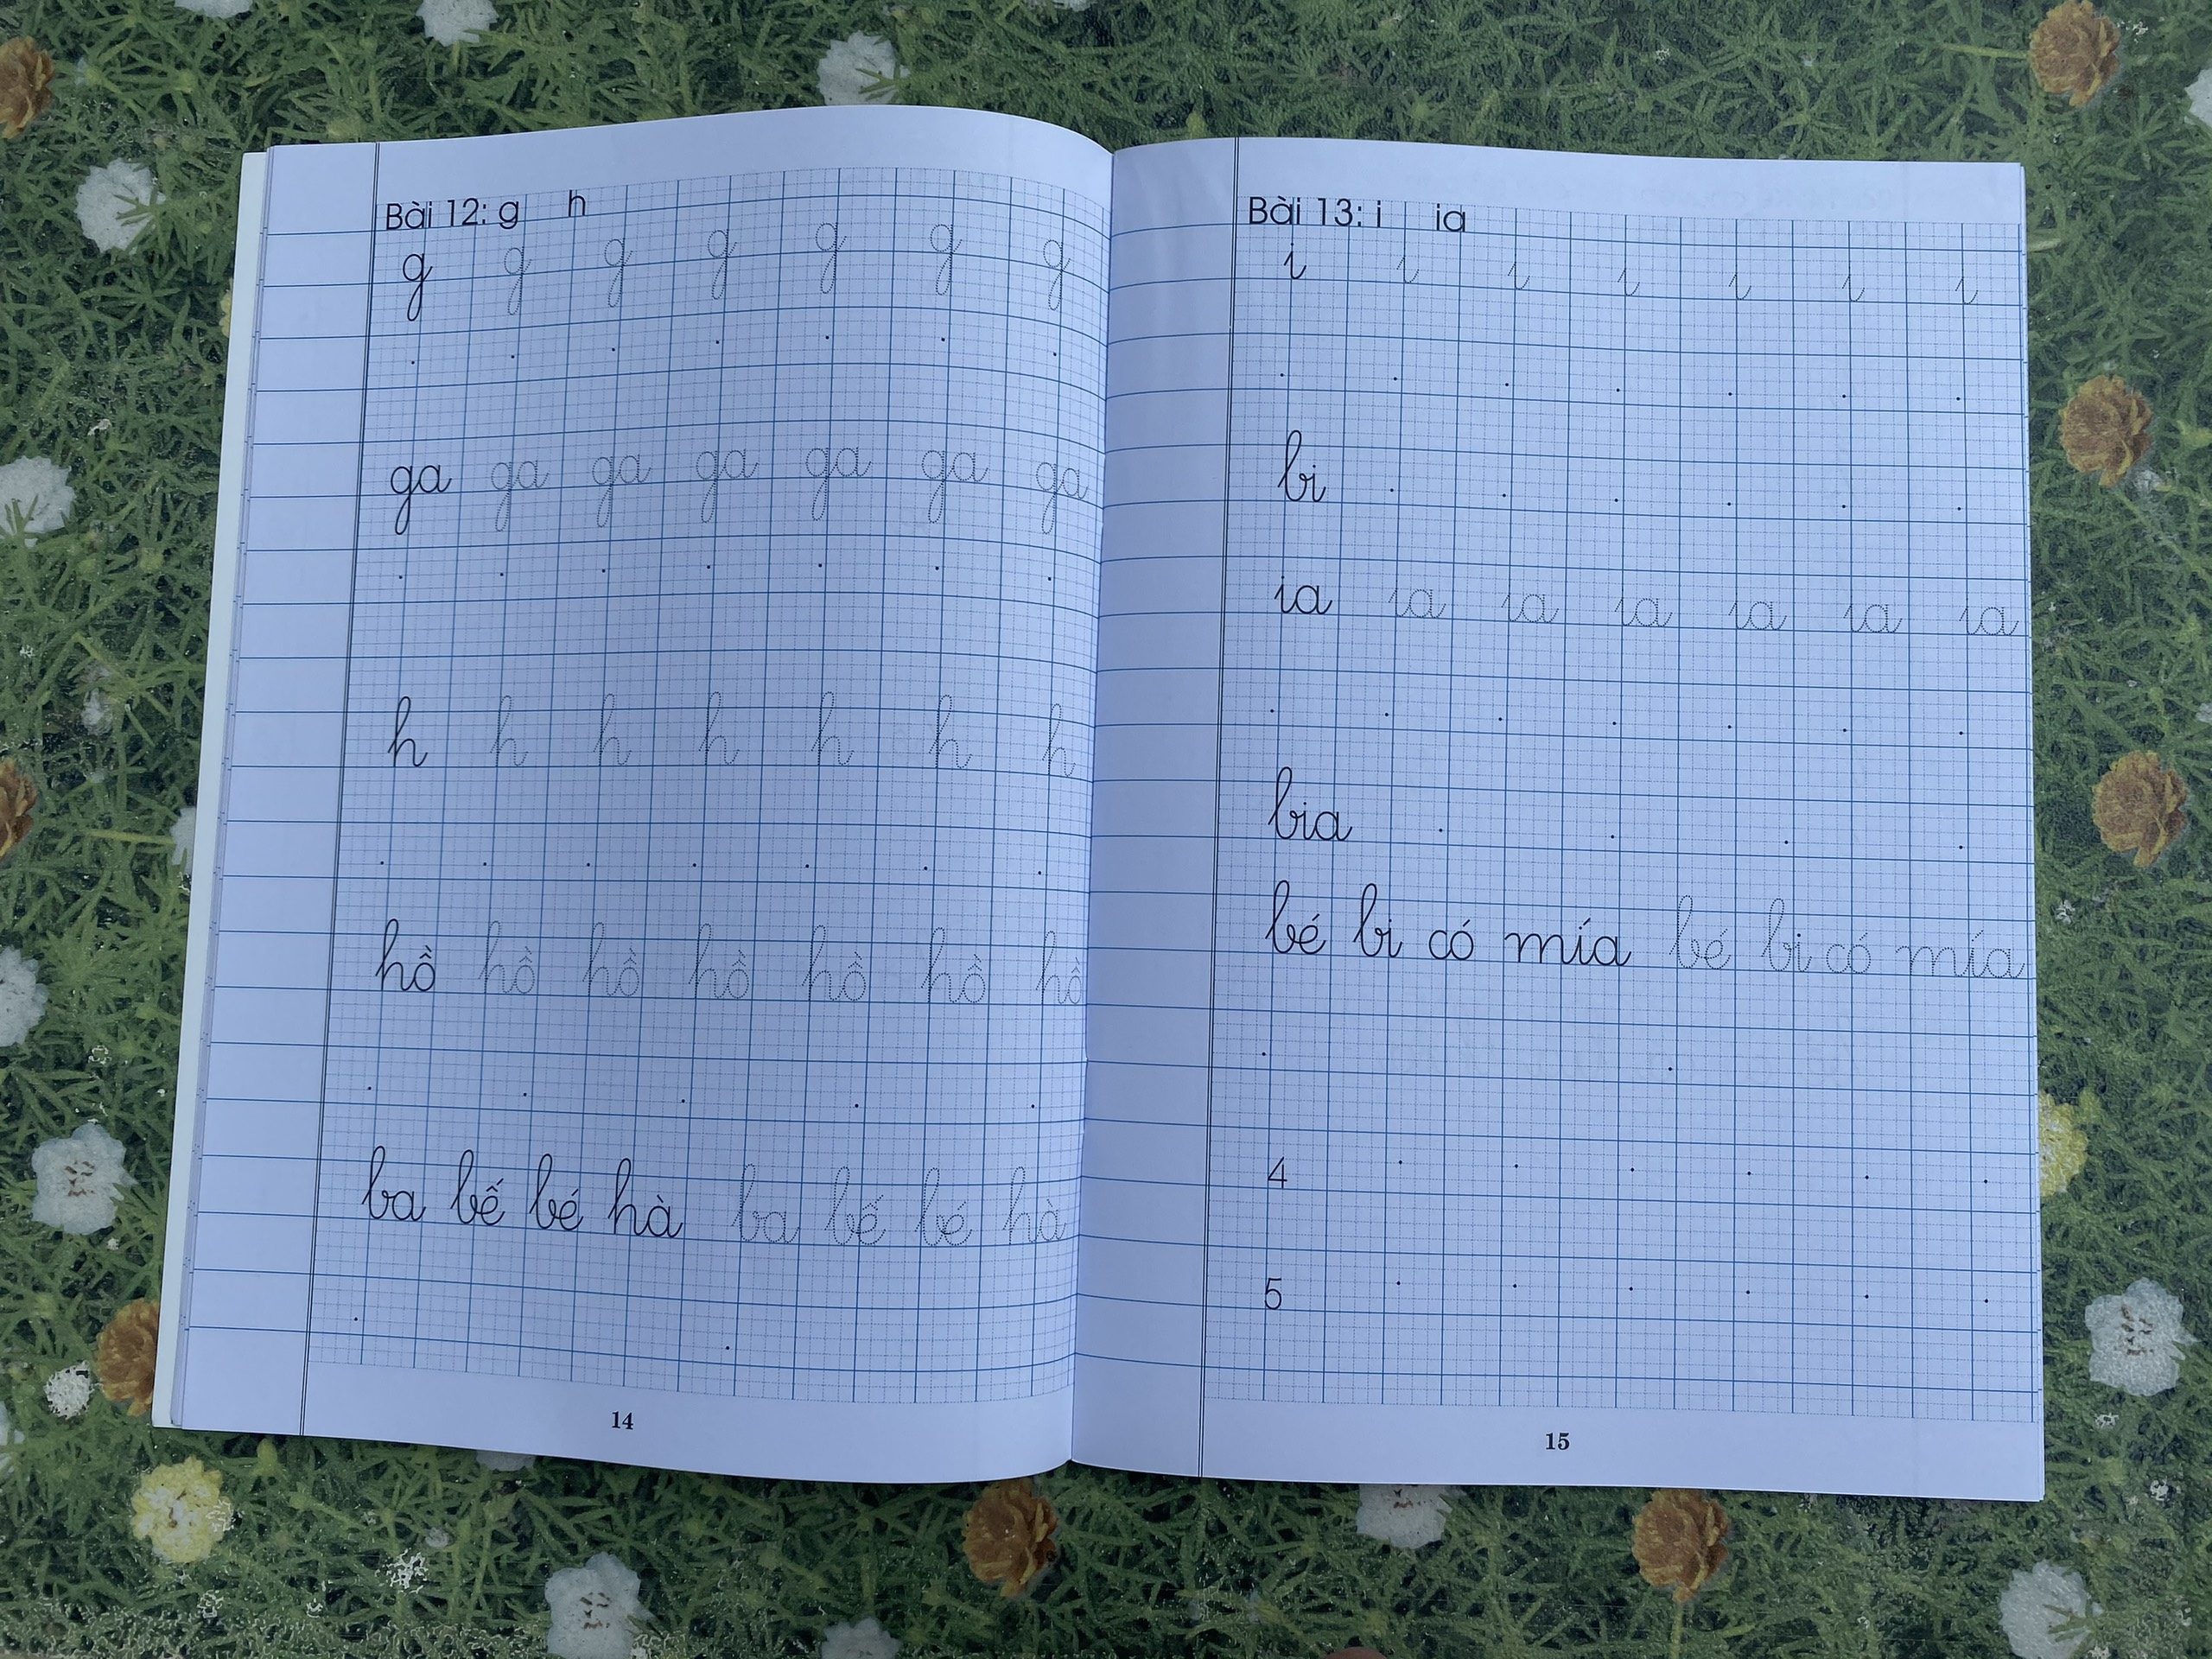 Bài 12: g h
g g g g g g g
ga ga ga ga ga ga ga
h h h h h h h
hồ hồ hồ hồ hồ hồ hồ
ba bế bé hà ba bế bé hà
14
Bài 13: i ia
i i i i i i i
bi
ia ia ia ia ia ia ia
bia
bé bi có mía bé bi có mía
4
5
15